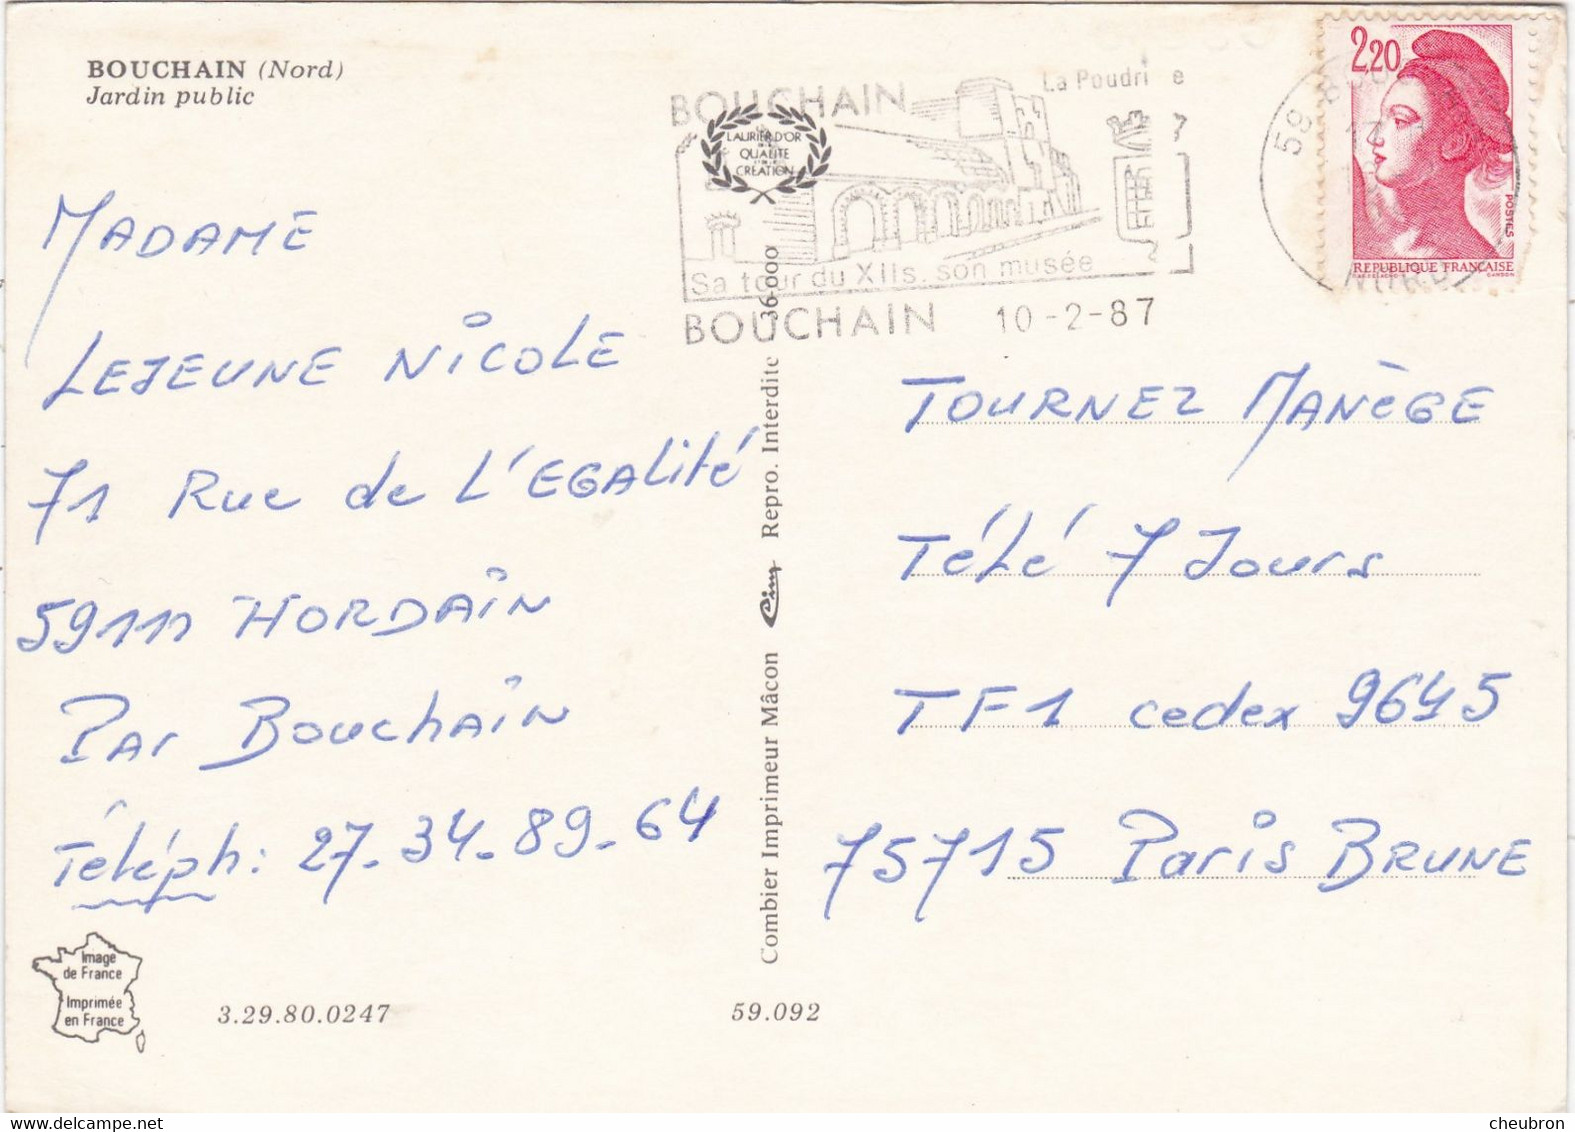 BOUCHAIN (Nord)
Jardin public
BOUCHAIN
La Poudri e
LAURIER D'OR
QUALITÉ
CRÉATION
Sa tour du XIIs. son musée
BOUCHAIN 10-2-87
2,20
POSTES
RÉPUBLIQUE FRANÇAISE
GANDON
59
NORD
MADAME
LEJEUNE NICOLE
71 Rue de L'EGALité
59111 HORDAIN
PAR BouchAIN
Téléph: 27-34-89-64
TOURNEZ MANÈGE
Télé 7 Jours
TF1 cedex 9645
75715 Paris BRUNE
Combier Imprimeur Mâcon Cim Repro. Interdite 36 000
Image
de France
Imprimée
en France
3.29.80.0247
59.092
cheubron